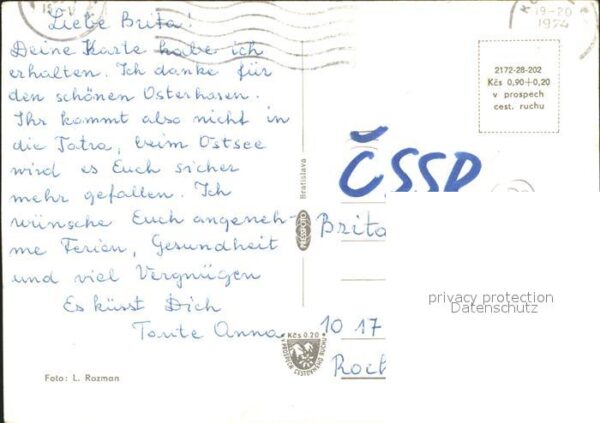 Liebe Brita!
Deine Karte habe ich
erhalten. Ich danke für
den schönen Osterhasen.
Ihr kommt also nicht in
die Tatra, beim Ostsee
wird es Euch sicher
mehr gefallen. Ich
wünsche Euch angeneh-
me Ferien, Gesundheit
und viel Vergnügen
Es küsst Dich
Tante Anna
Foto: L. Rozman
Bratislava
PRESSFOTO
Kčs 0.20
19-20
2172-28-202
Kčs 0,90+0,20
v prospech
cest. ruchu
ČSSR
Brita
10 17
privacy protection
Datenschutz